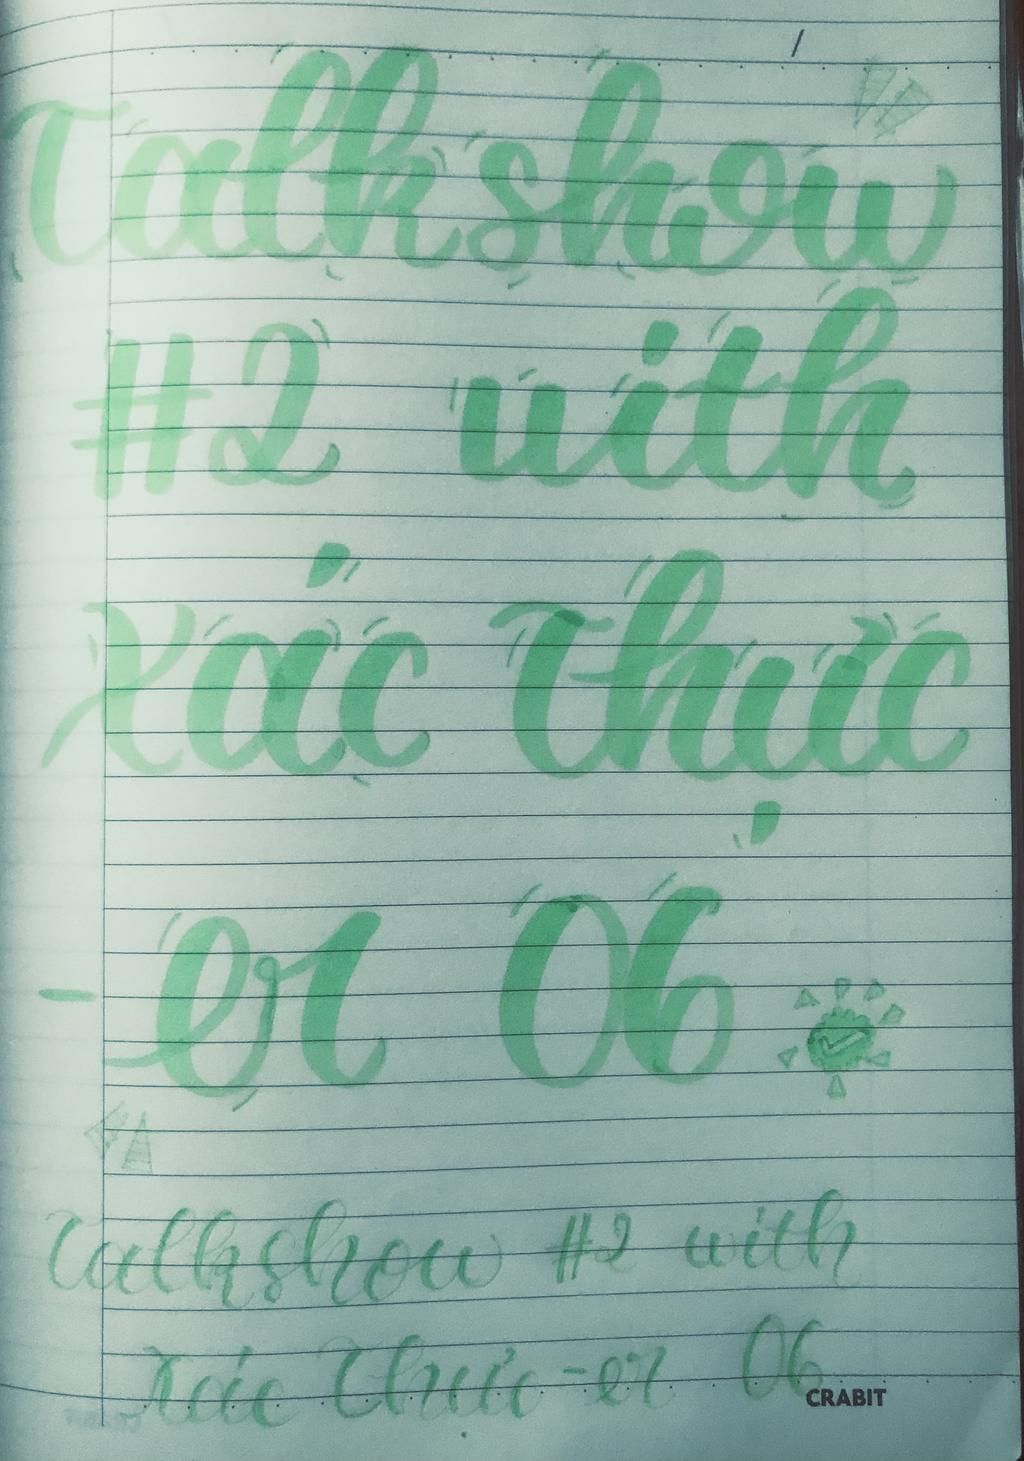 Talkshow
#2 with
Xác Thực
-er 06
Talkshow #2 with
Xác Thực-er 06
CRABIT